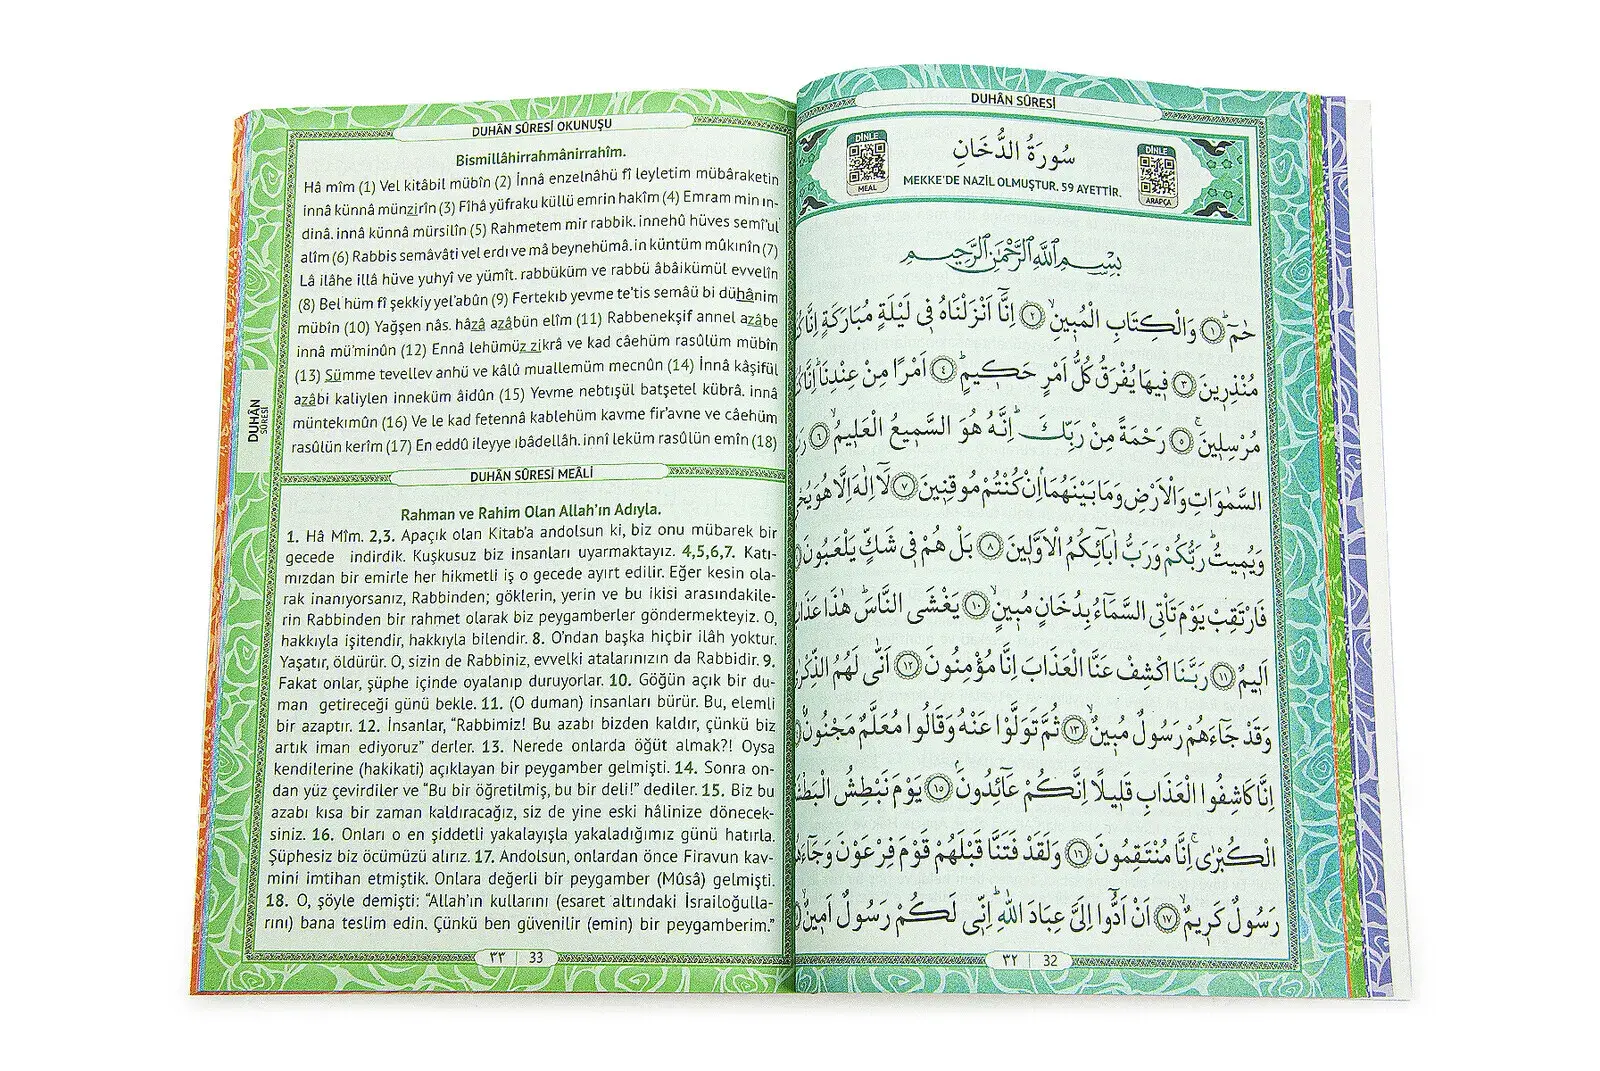 DUHÂN SÛRESİ OKUNUŞU
Bismillâhirrahmânirrahîm.
Hâ mîm (1) Vel kitâbil mübîn (2) İnnâ enzelnâhü fî leyletim mübâraketin
innâ künnâ münzirîn (3) Fîhâ yüfraku küllü emrin hakîm (4) Emram min ın-
dinâ. innâ künnâ mürsilîn (5) Rahmetem mir rabbik. innehû hüves semî'ul
alîm (6) Rabbis semâvâti vel erdı ve mâ beynehümâ. in küntüm mûkınîn (7)
Lâ ilâhe illâ hüve yuhyî ve yümît. rabbüküm ve rabbü âbâikümül evvelîn
(8) Bel hüm fî şekkiy yel'abûn (9) Fertekıb yevme te'tis semâü bi dühânim
mübîn (10) Yağşen nâs. hâzâ azâbün elîm (11) Rabbenekşif annel azâbe
innâ mü'minûn (12) Ennâ lehümüz zikrâ ve kad câehüm rasûlüm mübîn
(13) Sümme tevellev anhü ve kâlû muallemüm mecnûn (14) İnnâ kâşifül
azâbi kaliylen inneküm âidûn (15) Yevme nebtışül batşetel kübrâ. innâ
müntekımûn (16) Ve le kad fetennâ kablehüm kavme fir'avne ve câehüm
rasûlün kerîm (17) En eddû ileyye ıbâdellâh. innî leküm rasûlün emîn (18)
DUHÂN
SÛRESİ
DUHÂN SÛRESİ MEÂLİ
Rahman ve Rahim Olan Allah'ın Adıyla.
1. Hâ Mîm. 2,3. Apaçık olan Kitab'a andolsun ki, biz onu mübarek bir
gecede indirdik. Kuşkusuz biz insanları uyarmaktayız. 4,5,6,7. Katı-
mızdan bir emirle her hikmetli iş o gecede ayırt edilir. Eğer kesin ola-
rak inanıyorsanız, Rabbinden; göklerin, yerin ve bu ikisi arasındakile-
rin Rabbinden bir rahmet olarak biz peygamberler göndermekteyiz. O,
hakkıyla işitendir, hakkıyla bilendir. 8. O'ndan başka hiçbir ilâh yoktur.
Yaşatır, öldürür. O, sizin de Rabbiniz, evvelki atalarınızın da Rabbidir. 9.
Fakat onlar, şüphe içinde oyalanıp duruyorlar. 10. Göğün açık bir du-
man getireceği günü bekle. 11. (O duman) insanları bürür. Bu, elemli
bir azaptır. 12. İnsanlar, "Rabbimiz! Bu azabı bizden kaldır, çünkü biz
artık iman ediyoruz" derler. 13. Nerede onlarda öğüt almak?! Oysa
kendilerine (hakikati) açıklayan bir peygamber gelmişti. 14. Sonra on-
dan yüz çevirdiler ve "Bu bir öğretilmiş, bu bir deli!" dediler. 15. Biz bu
azabı kısa bir zaman kaldıracağız, siz de yine eski hâlinize dönecek-
siniz. 16. Onları o en şiddetli yakalayışla yakaladığımız günü hatırla.
Şüphesiz biz öcümüzü alırız. 17. Andolsun, onlardan önce Firavun kav-
mini imtihan etmiştik. Onlara değerli bir peygamber (Mûsâ) gelmişti.
18. O, şöyle demişti: "Allah'ın kullarını (esaret altındaki İsrailoğulla-
rını) bana teslim edin. Çünkü ben güvenilir (emin) bir peygamberim."
٣٣ | 33
DUHÂN SÛRESİ
DİNLE
MEAL
سُورَةُ الدُّخَانِ
MEKKE'DE NAZİL OLMUŞTUR. 59 AYETTİR.
DİNLE
ARAPÇA
بِسْمِ اللّٰهِ الرَّحْمٰنِ الرَّحِيمِ
حٰمٓ ۚ ﴿١﴾ وَالْكِتَابِ الْمُبٖينِۙ ﴿٢﴾ اِنَّٓا اَنْزَلْنَاهُ فٖي لَيْلَةٍ مُبَارَكَةٍ اِنَّا
مُنْذِرٖينَ ﴿٣﴾ فٖيهَا يُفْرَقُ كُلُّ اَمْرٍ حَكٖيمٍۙ ﴿٤﴾ اَمْرًا مِنْ عِنْدِنَاؕ اِنَّا
مُرْسِلٖينَۚ ﴿٥﴾ رَحْمَةً مِنْ رَبِّكَؕ اِنَّهُ هُوَ السَّمٖيعُ الْعَلٖيمُۙ ﴿٦﴾
السَّمٰوَاتِ وَالْاَرْضِ وَمَا بَيْنَهُمَا اِنْ كُنْتُمْ مُوقِنٖينَ ﴿٧﴾ لَٓا اِلٰهَ اِلَّا هُوَ
وَيُمٖيتُؕ رَبُّكُمْ وَرَبُّ اٰبَٓائِكُمُ الْاَوَّلٖينَ ﴿٨﴾ بَلْ هُمْ فٖي شَكٍّ يَلْعَبُونَ
فَارْتَقِبْ يَوْمَ تَاْتِي السَّمَٓاءُ بِدُخَانٍ مُبٖينٍۙ ﴿١٠﴾ يَغْشَى النَّاسَؕ هٰذَا
اَلٖيمٌ ﴿١١﴾ رَبَّنَا اكْشِفْ عَنَّا الْعَذَابَ اِنَّا مُؤْمِنُونَ ﴿١٢﴾ اَنّٰى لَهُمُ
وَقَدْ جَٓاءَهُمْ رَسُولٌ مُبٖينٌۙ ﴿١٣﴾ ثُمَّ تَوَلَّوْا عَنْهُ وَقَالُوا مُعَلَّمٌ مَجْنُونٌ
اِنَّا كَاشِفُوا الْعَذَابِ قَلٖيلًا اِنَّكُمْ عَٓائِدُونَۘ ﴿١٥﴾ يَوْمَ نَبْطِشُ
الْكُبْرٰىۚ اِنَّا مُنْتَقِمُونَ ﴿١٦﴾ وَلَقَدْ فَتَنَّا قَبْلَهُمْ قَوْمَ فِرْعَوْنَ
رَسُولٌ كَرٖيمٌۙ ﴿١٧﴾ اَنْ اَدُّٓوا اِلَيَّ عِبَادَ اللّٰهِؕ اِنّٖي لَكُمْ رَسُولٌ اَمٖينٌ
٣٢ | 32